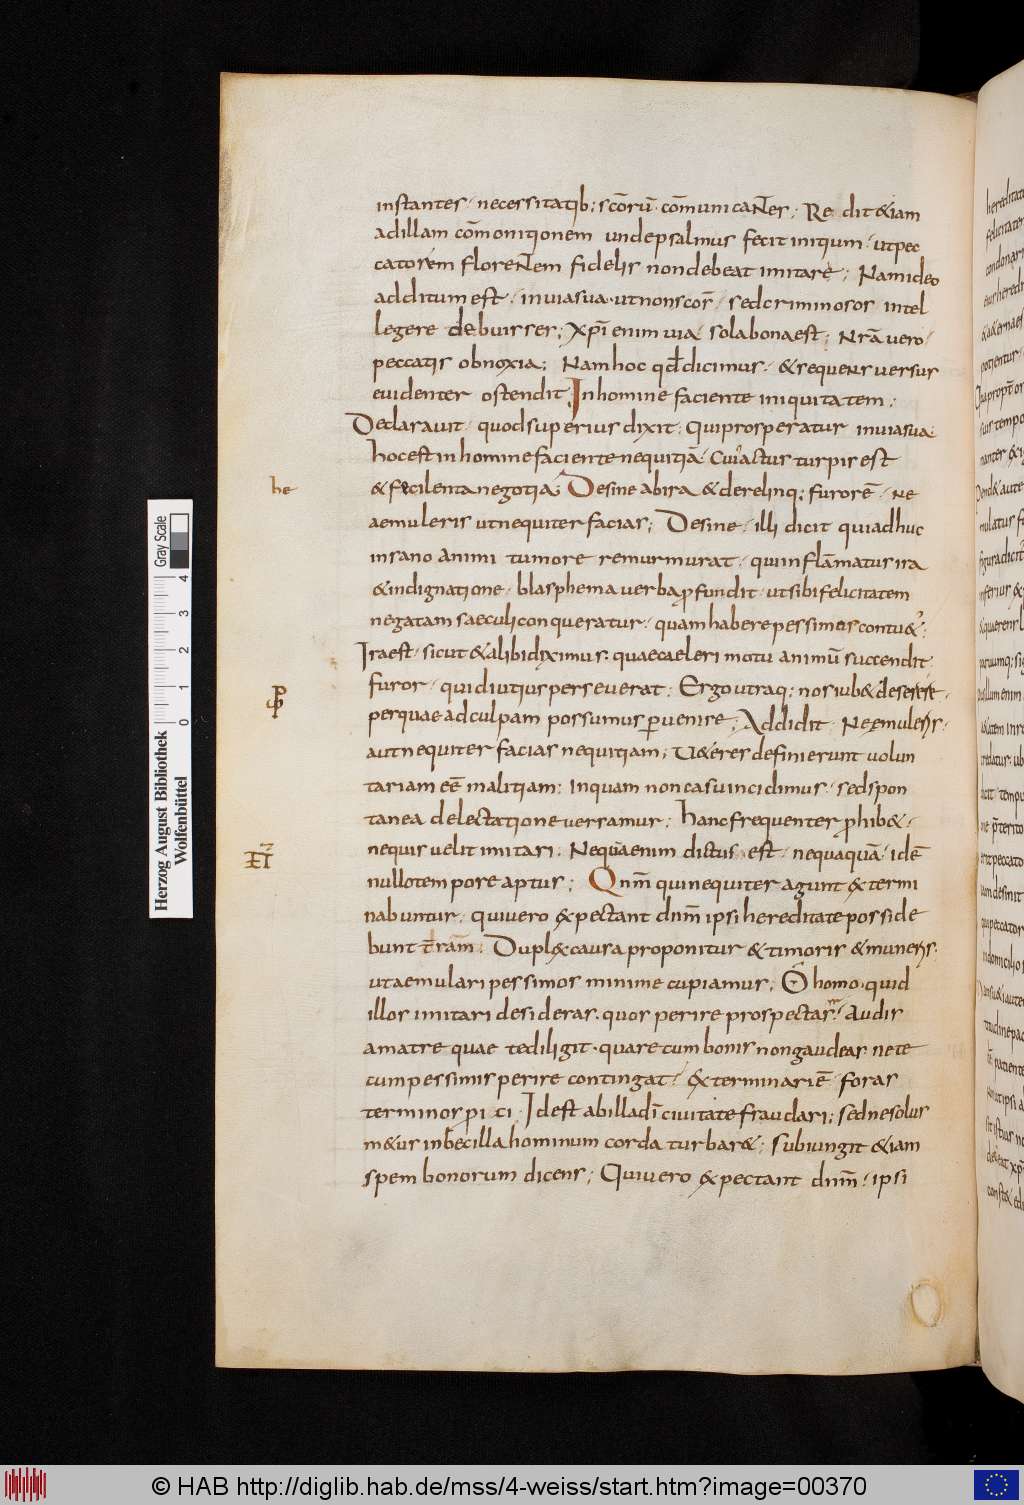 instantes · necessitatib; scōrū · cōmunicaNtes; Re dit &iam
adillam cōmonitionem undepsalmus fecit initium · utpec
catorem floreNtem fidelis nondebeat imitare; Namideo
additum est · inuiasua · utnonscōs · sedcriminosos intel
legere debuisses; Xp̄i enim uia · solabonaest; Nr̄a uero ·
peccatis obnoxia; Namhoc qd̄dicimus · &sequeNs uersus
euidenter ostendit. Inhomine faciente iniquitatem;
Declarauit · quodsuperius dixit; Quiprosperatur inuiasua.
hocest inhominefacientenequitiā · Cui'actus turpis est
he
& feculentanegotia; Desine abira &derelinq; furorē · Ne
aemuleris utnequiter facias; Desine · illi dicit quiadhuc
insano animi tumore remurmurat · quiinflāmatus ira
&indignatione · blasphema uerba ꝓfundit · utsibifelicitatem
negatam saeculiconqueratur · quamhaberepessimos contu&';
Ira est · sicut &alibidiximus · quaeceleri motu animū succendit.
furor · quidiutius perseuerat; Ergo utraq; nos iub& deserere ·
perquae adculpam possumus ꝑuenire; Addidit · Neęmuleris ·
aut nequiter facias nequitiam; U&eres definierunt uolun
tariam eē malitiam; Inquam noncasuincidimus · sedspon
tanea delectatione uersamur; hanc frequenter ꝓhib& ·
nequis uelit imitari; Nequam enim dictus est · nequaquā · idē
nullo tempore aptus; Qnm̄ quinequiter agunt extermi
nabuntur; quiuero expectant dnm̄ ipsi hereditate posside
bunt t̄ram; Duplex causa proponitur &timoris &muneris ·
utaemulari pessimos minime cupiamus; O homo · quid
illos imitari desideras · quos perire prospectas; Audis
amatre quae tediligit · quare cum bonis nongaudeas nete
cumpessimis perire contingat; exterminariē · foras
terminos ꝓici; Idest abilladī ciuitate fraudari; sednesolus
m&us inbecilla hominum corda turbar&; subiungit &iam
spem bonorum dicens; Quiuero expectant dnm̄ · ipsi
Gray Scale
0 1 2 3 4
Herzog August Bibliothek
Wolfenbüttel
© HAB http://diglib.hab.de/mss/4-weiss/start.htm?image=00370